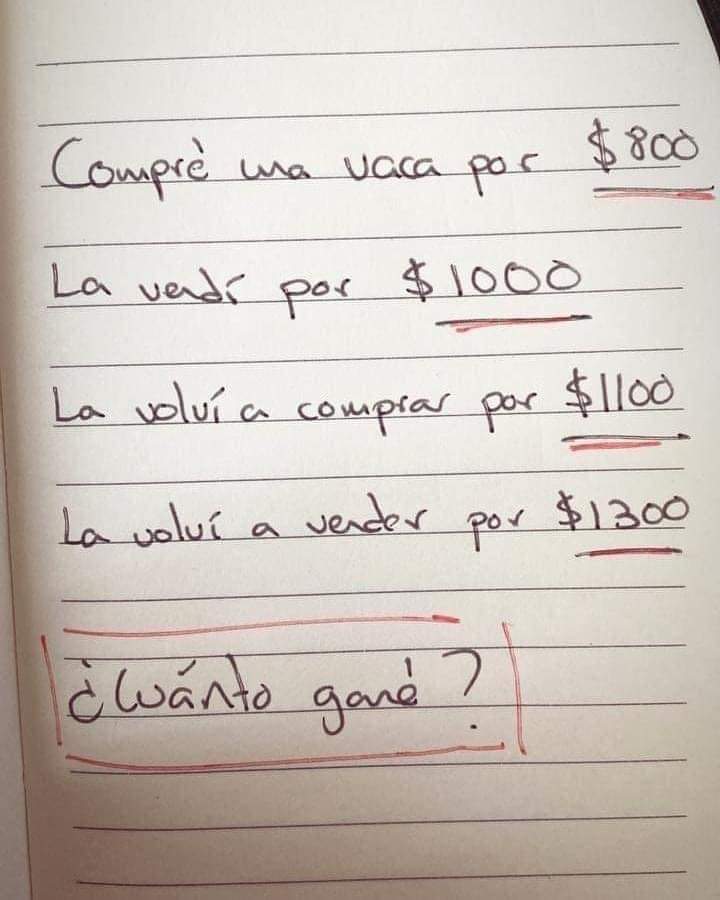 Comprè una vaca por $800
La vendí por $1000
La volví a comprar por $1100
La volví a vender por $1300
¿Cuánto gané?